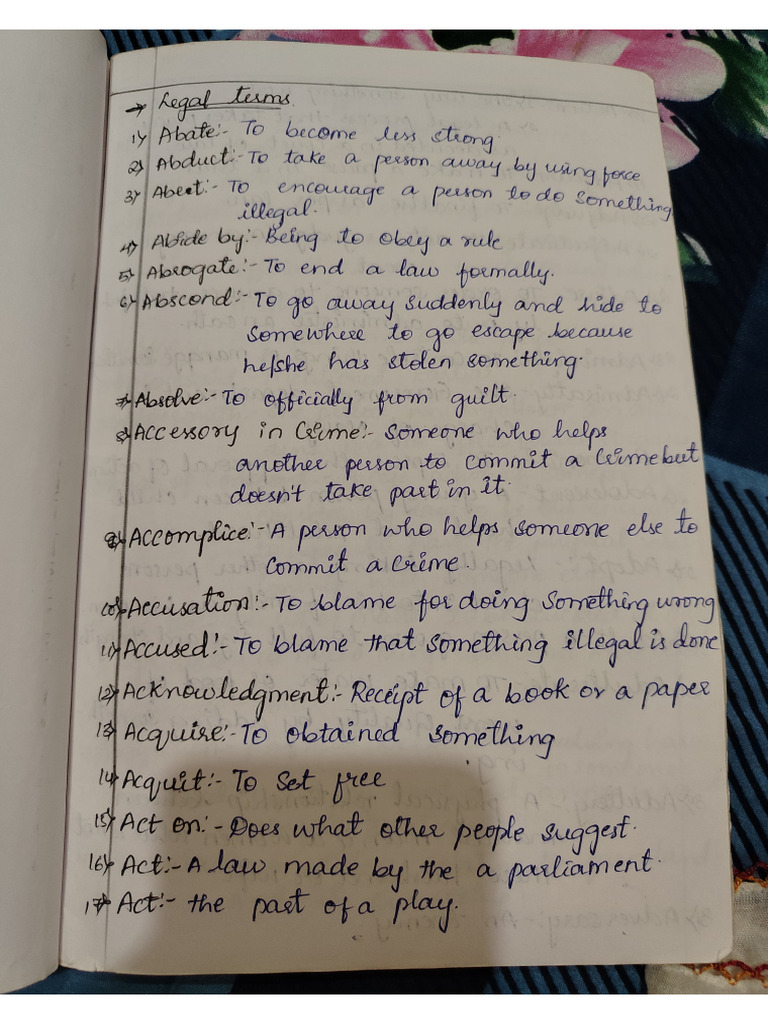 → Legal terms
1) Abate:- To become less strong.
2) Abduct:- To take a person away by using force
3) Abeet:- To encourage a person to do something
illegal.
4) Abide by:- Being to obey a rule
5) Abrogate:- To end a law formally.
6) Abscond:- To go away suddenly and hide to
somewhere to go escape because
he/she has stolen something.
7) Absolve:- To officially from guilt.
8) Accessory in Crime:- Someone who helps
another person to commit a crime but
doesn't take part in it.
9) Accomplice:- A person who helps someone else to
commit a crime.
10) Accusation:- To blame for doing something wrong
11) Accused:- To blame that something illegal is done
12) Acknowledgment:- Receipt of a book or a paper
13) Acquire:- To obtained something
14) Acquit:- To set free
15) Act on:- Does what other people suggest.
16) Act:- A law made by the a parliament.
17) Act:- the part of a play.